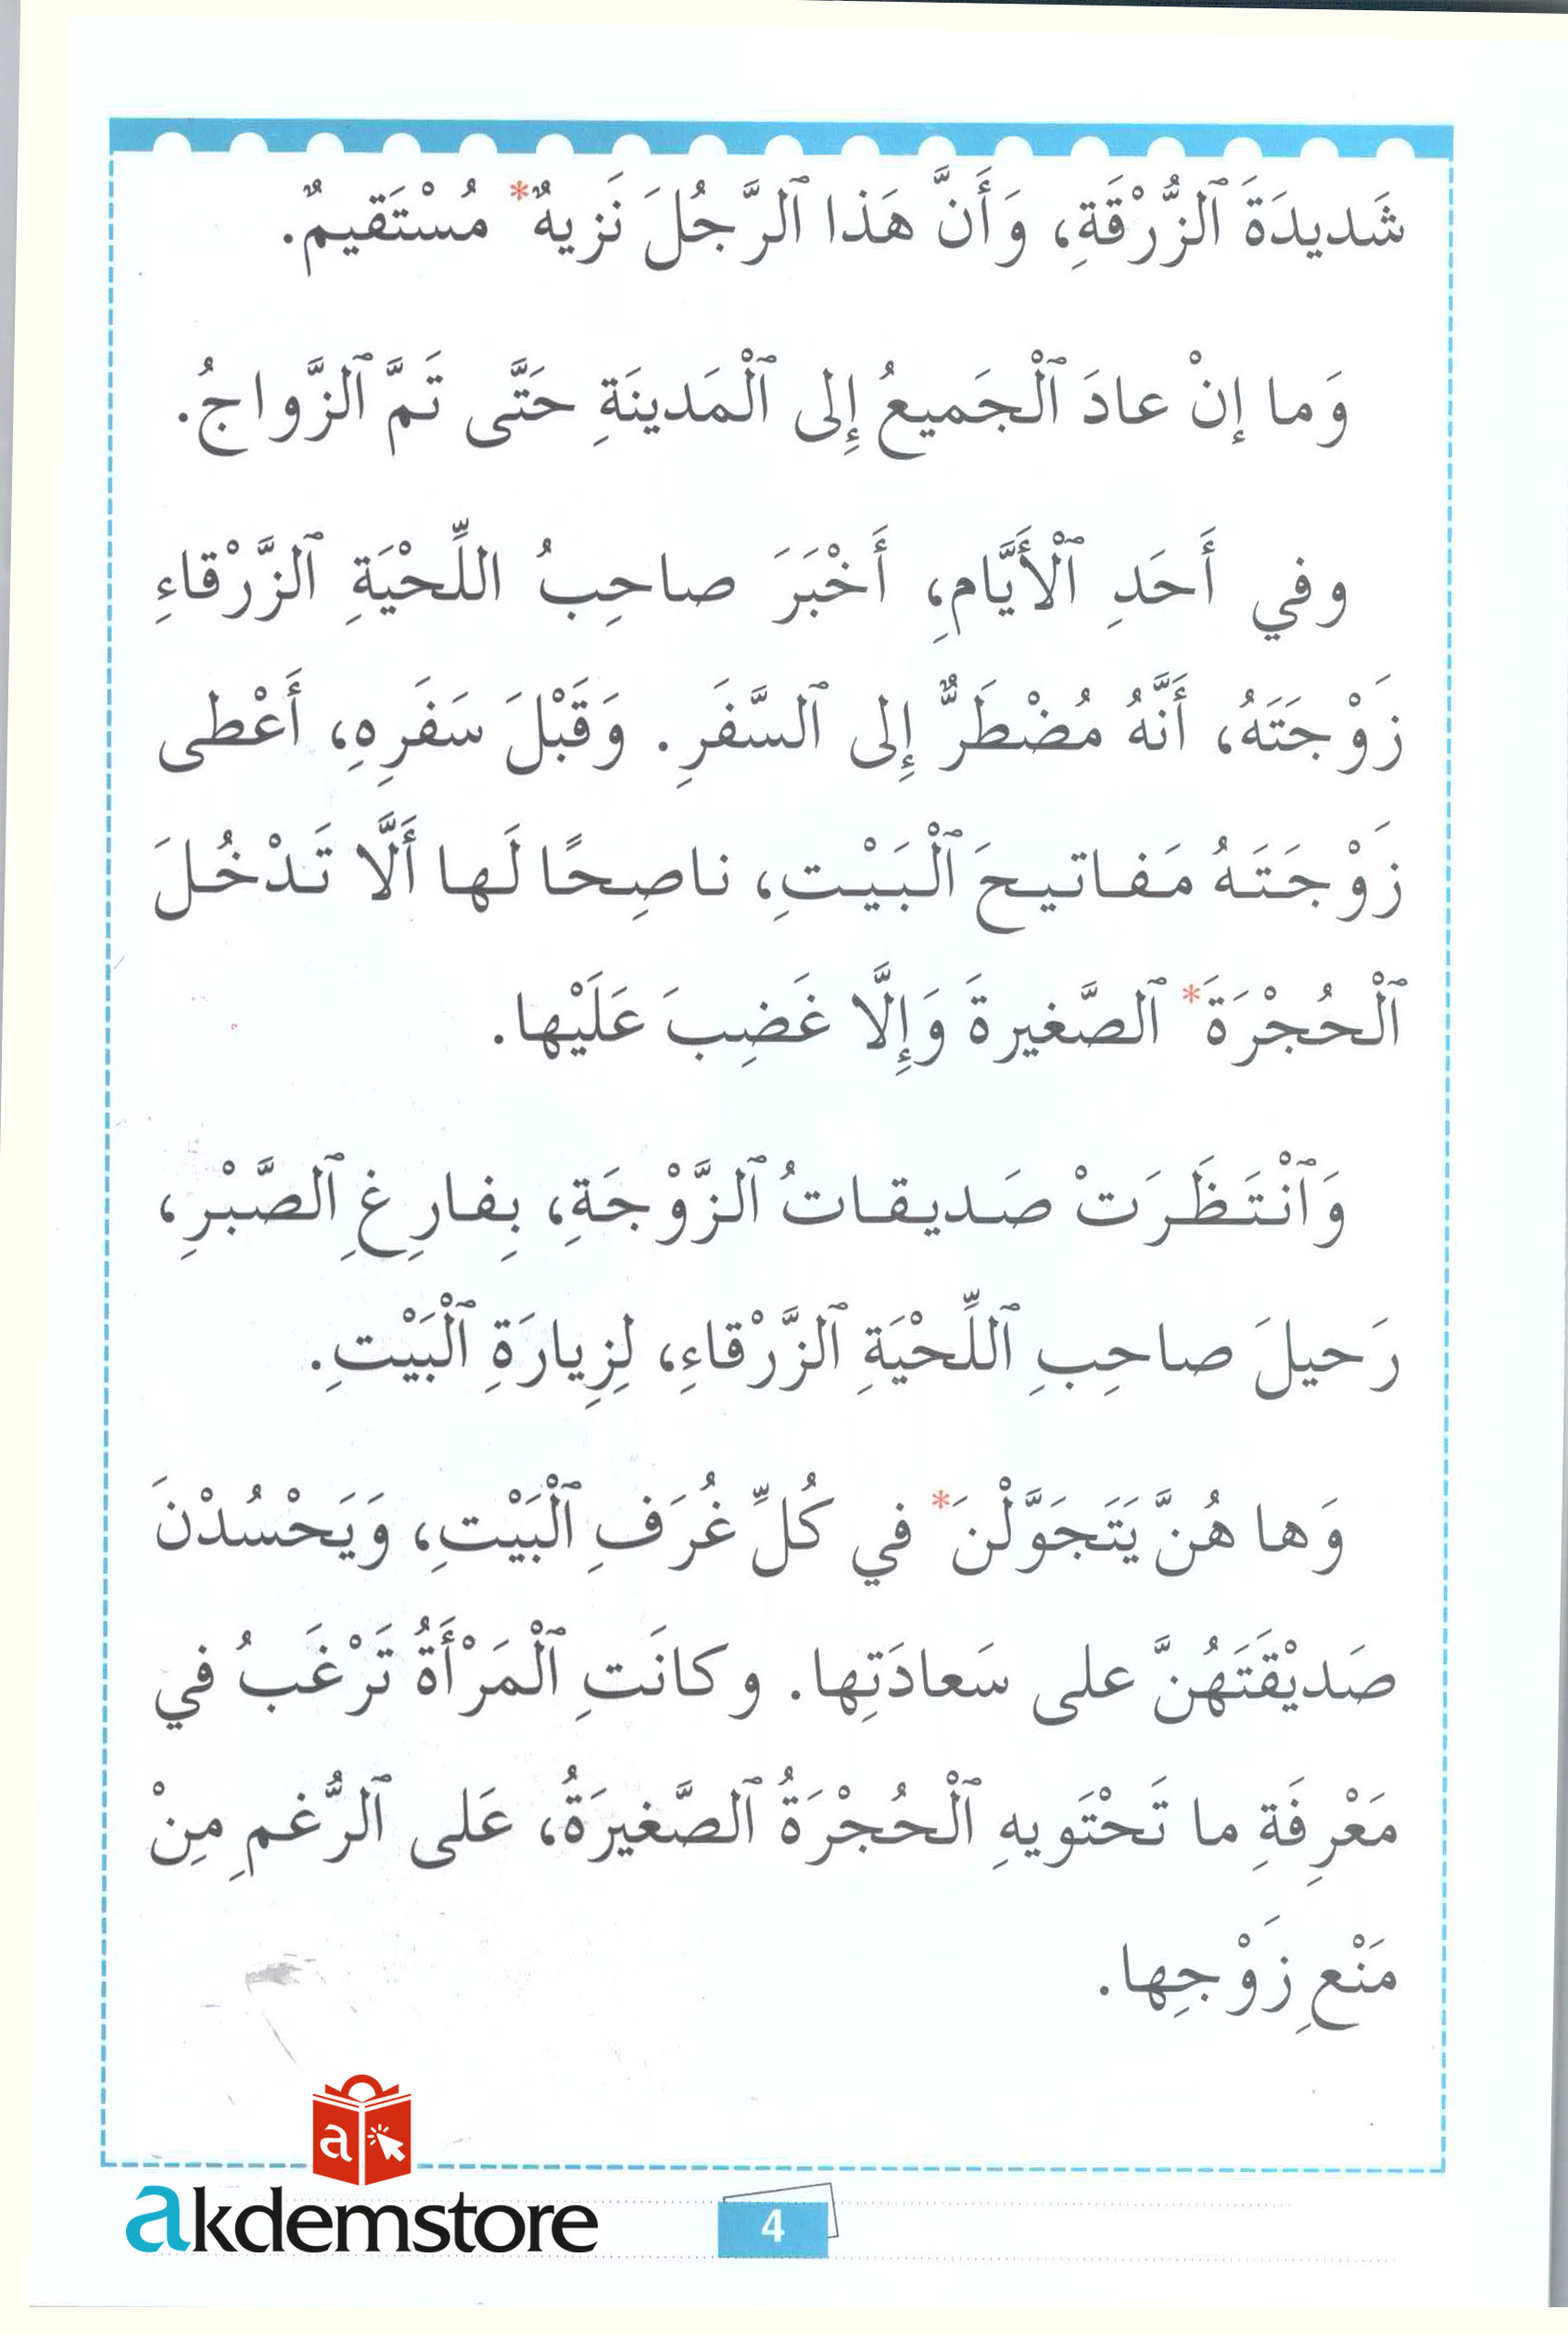 شَديدَةَ ٱلزُّرْقَةِ، وَأَنَّ هَذا ٱلرَّجُلَ نَزيهٌ* مُسْتَقيمٌ.
وَما إنْ عادَ ٱلْجَميعُ إِلى ٱلْمَدينَةِ حَتَّى تَمَّ ٱلزَّواجُ.
وفي أَحَدِ ٱلْأَيَّامِ، أَخْبَرَ صاحِبُ اللِّحْيَةِ ٱلزَّرْقاءِ
زَوْجَتَهُ، أَنَّهُ مُضْطَرٌّ إِلى ٱلسَّفَرِ. وَقَبْلَ سَفَرِهِ، أَعْطى
زَوْجَتَهُ مَفاتيحَ ٱلْبَيْتِ، ناصِحًا لَها أَلَّا تَدْخُلَ
ٱلْحُجْرَةَ* ٱلصَّغيرةَ وَإِلَّا غَضِبَ عَلَيْها.
وَٱنْتَظَرَتْ صَديقاتُ ٱلزَّوْجَةِ، بِفارِغِ ٱلصَّبْرِ،
رَحيلَ صاحِبِ ٱللِّحْيَةِ ٱلزَّرْقاءِ، لِزِيارَةِ ٱلْبَيْتِ.
وَها هُنَّ يَتَجَوَّلْنَ* في كُلِّ غُرَفِ ٱلْبَيْتِ، وَيَحْسُدْنَ
صَديْقَتَهُنَّ على سَعادَتِها. وكانَتِ ٱلْمَرْأَةُ تَرْغَبُ في
مَعْرِفَةِ ما تَحْتَويهِ ٱلْحُجْرَةُ ٱلصَّغيرَةُ، عَلى ٱلرُّغمِ مِنْ
مَنْعِ زَوْجِها.
a
akdemstore
4